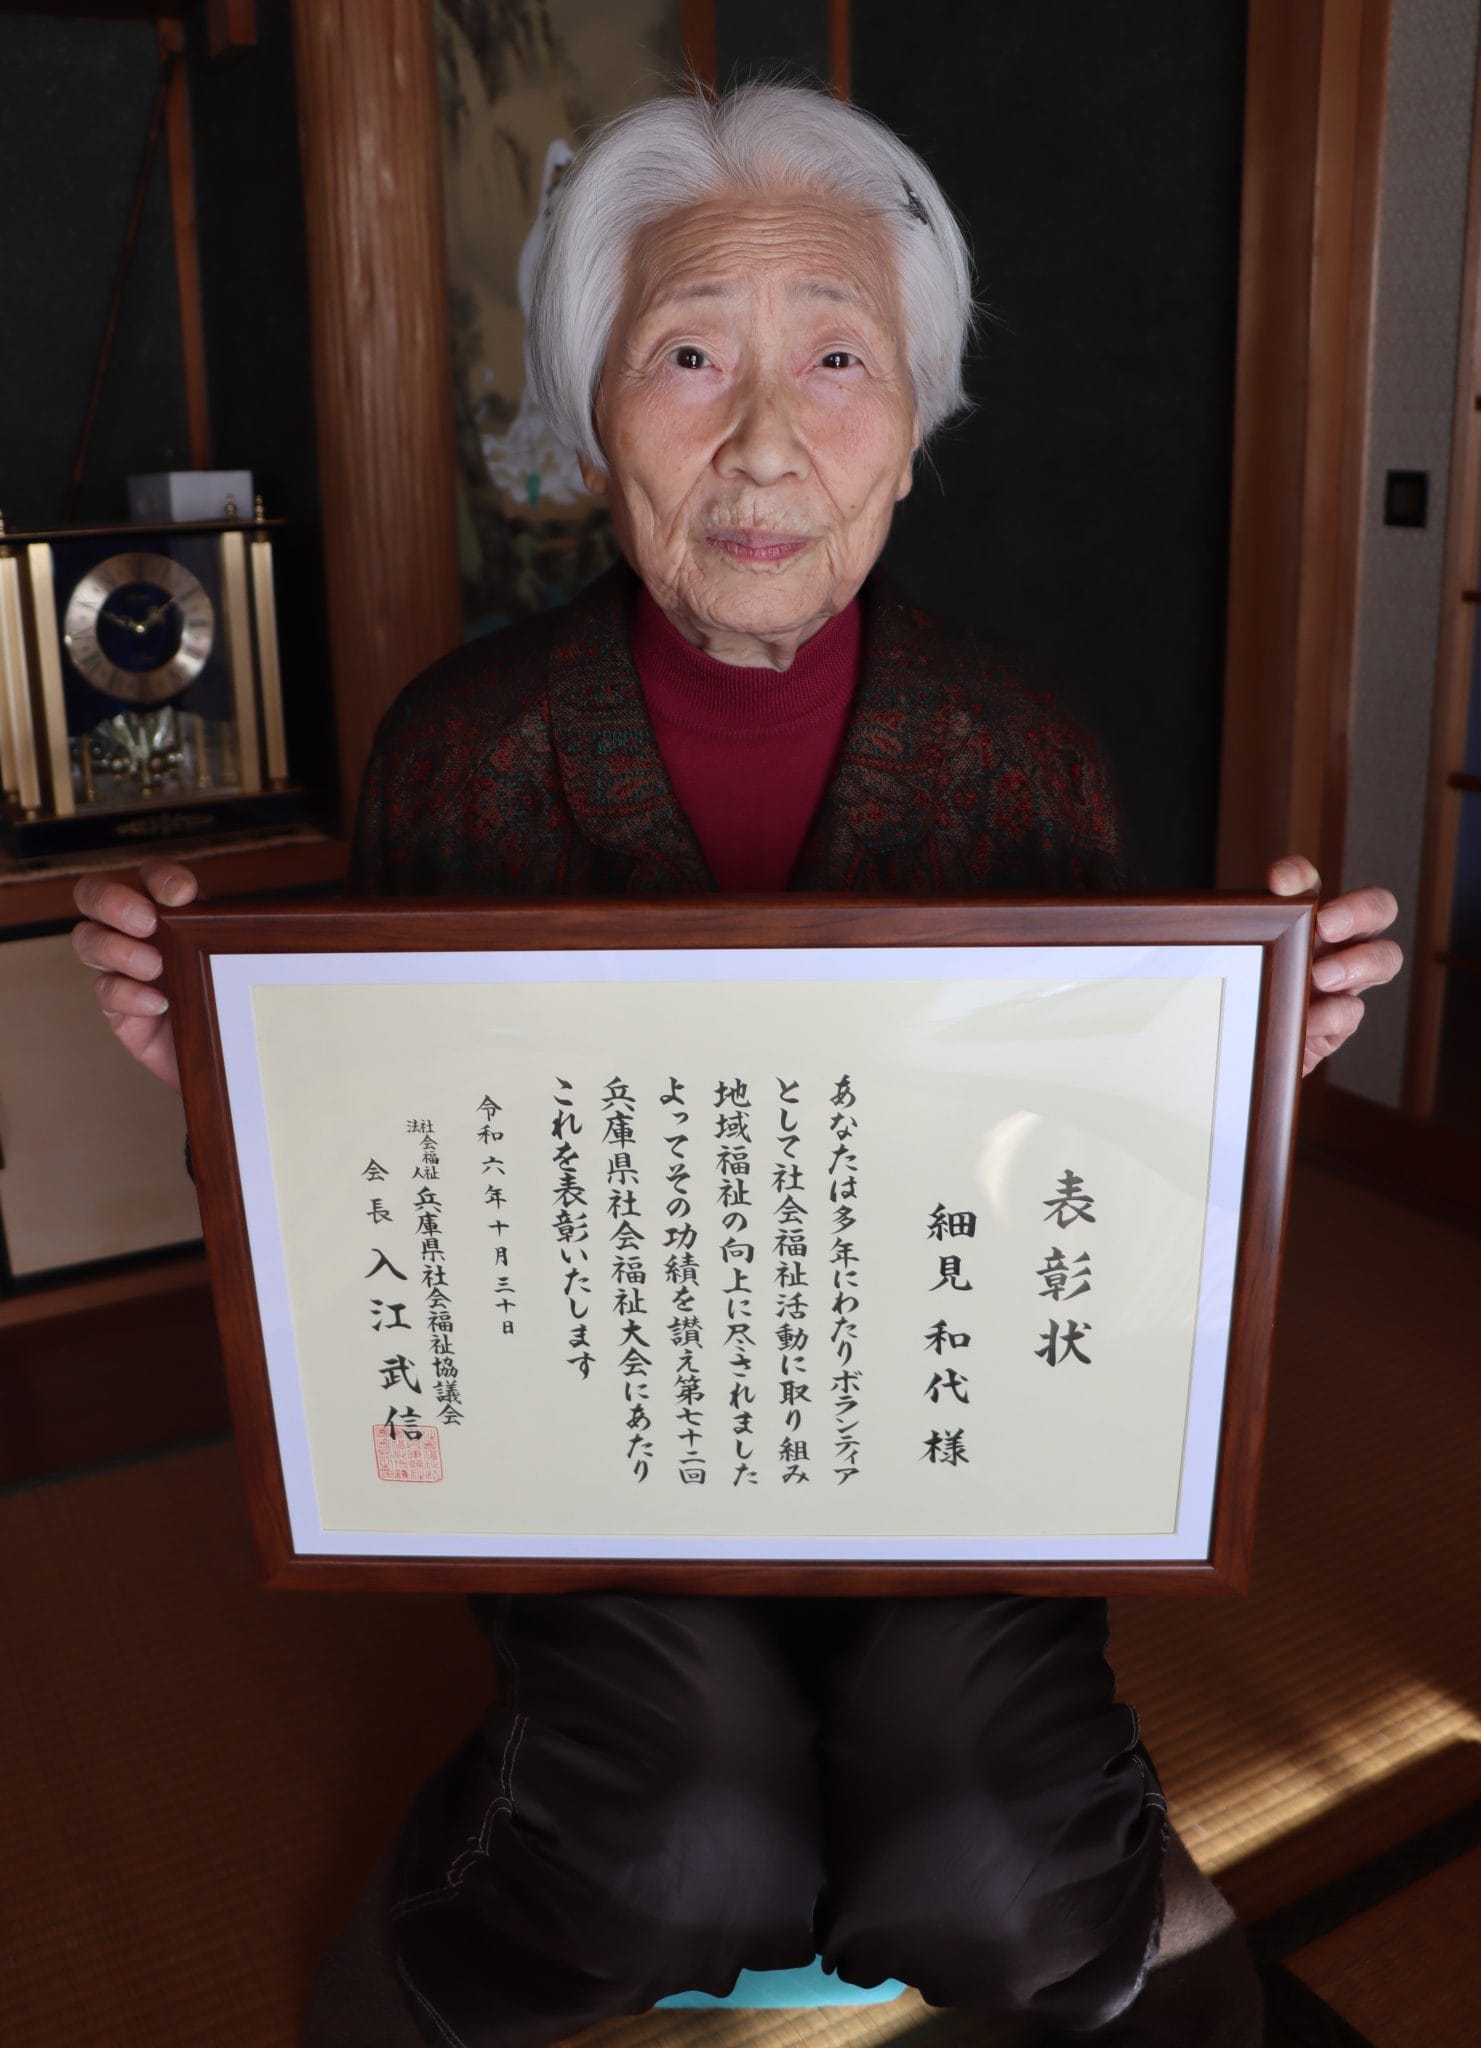 表彰状
細見和代様
あなたは多年にわたりボランティア
として社会福祉活動に取り組み
地域福祉の向上に尽されました
よってその功績を讃え第七十二回
兵庫県社会福祉大会にあたり
これを表彰いたします
令和六年十月三十日
社会福祉法人 兵庫県社会福祉協議会
会長 入江武信